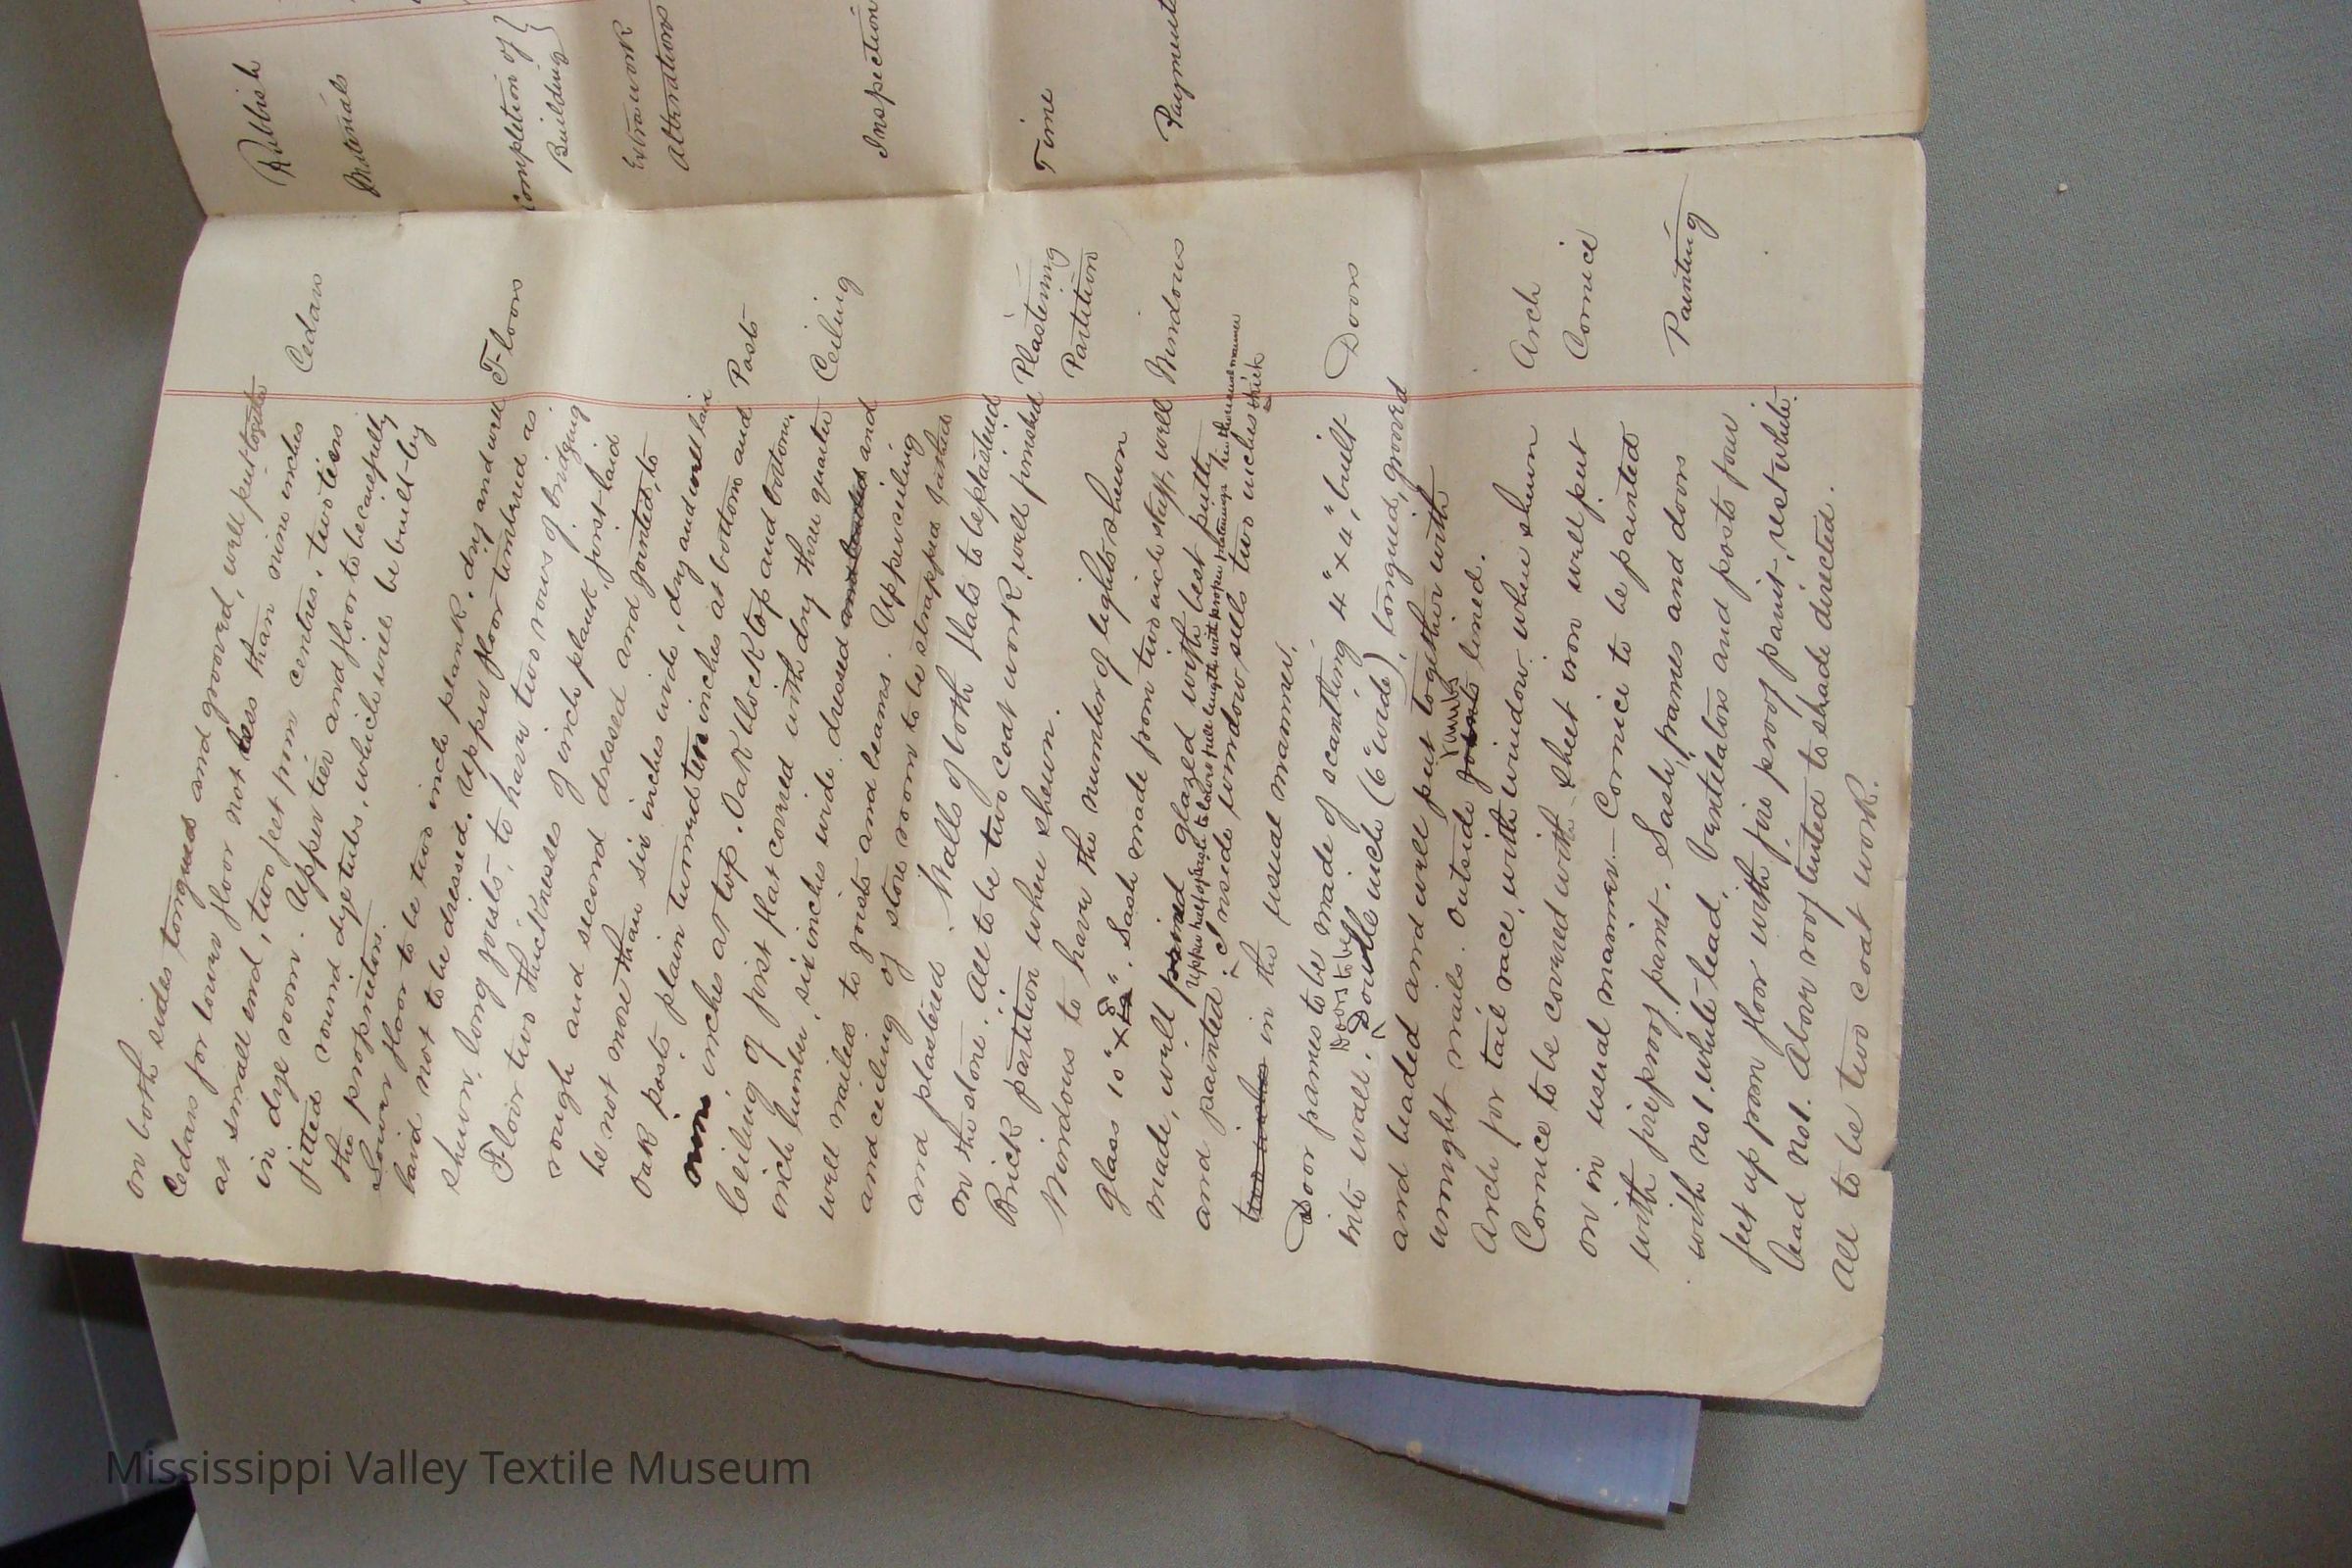 on both sides tongued and grooved, well put together
Cedars for lower floor not less than nine inches
Cedars
at small end, two feet from centres, two tiers
in dye room. Upper tier and floor to be carefully
fitted round dye tubs, which will be built by
the proprietors.
Lower floor to be two inch plank, dry and well
Floors
laid not to be dressed. Upper floor timbered as
shewn, long joists, to have two rows of bridging
Floor two thicknesses of inch plank, first laid
rough and second dressed and jointed, to
be not more than six inches wide, dry and well laid
Oak posts plain turned ten inches at bottom and
Posts
nine inches at top. Oak block top and bottom.
Ceiling of first flat covered with dry three quarter
Ceiling
inch lumber, six inches wide dressed and beaded and
well nailed to joists and beams. Upper ceiling
and ceiling of store room to be strapped lathed
and plastered. Walls of both flats to be plastered
Plastering
on the stone. All to be two coat work well finished
Brick partition where shewn.
Partition
Windows to have the number of lights shewn
Glass 10" x 8". Sash made from two inch stuff, well
Windows
made, well primed glazed with best putty
Upper half of sash to lower full length with proper fastenings hung the usual manner
and painted. Inside window sills two inches thick
two inches in the usual manner.
Door frames to be made of scantling 4" x 4", built
Doors
into wall. Doors to be Double inch (6" wide), tongued, grooved
and beaded and well put together with
wrought nails. Outside joints lined.
Arch for tail race, with window when shewn
Arch
Cornice to be covered with sheet iron well put
Cornice
on in usual manner. Cornice to be painted
with fireproof paint. Sash, frames and doors
Painting
with no 1. white lead. Ventilators and posts four
feet up from floor with fire proof paint, rest white
lead no 1. Above roof tinted to shade directed.
All to be two coat work.
Rubbish
Materials
Completion of
Building
Extra work
Alterations
Inspection
Time
Payments
Mississippi Valley Textile Museum